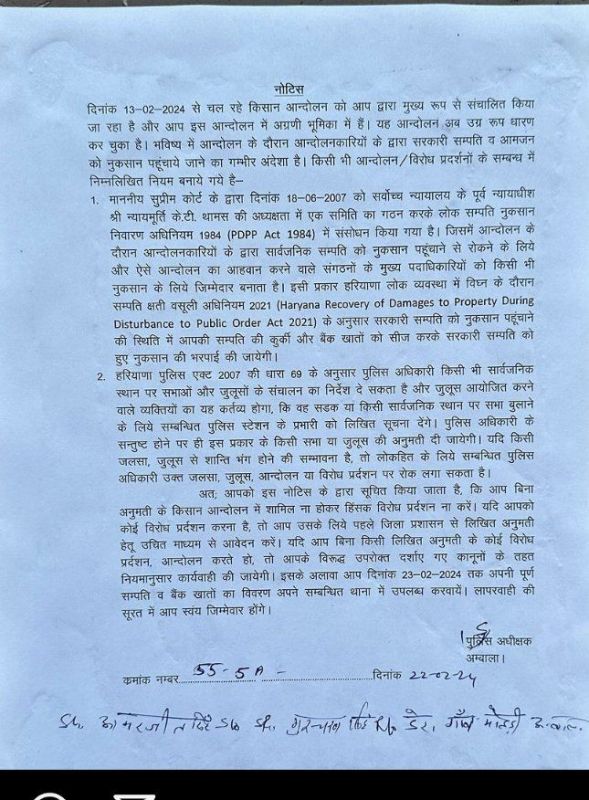 नोटिस
दिनांक 13–02–2024 से चल रहे किसान आन्दोलन को आप द्वारा मुख्य रूप से संचालित किया
जा रहा है और आप इस आन्दोलन में अग्रणी भूमिका में हैं। यह आन्दोलन अब उग्र रूप धारण
कर चुका है। भविष्य में आन्दोलन के दौरान आन्दोलनकारियों के द्वारा सरकारी सम्पति व आमजन
को नुकसान पहुंचाये जाने का गम्भीर अंदेशा है। किसी भी आन्दोलन/विरोध प्रदर्शनों के सम्बन्ध में
निम्नलिखित नियम बनाये गये है–
1. माननीय सुप्रीम कोर्ट के द्वारा दिनांक 18–06–2007 को सर्वोच्च न्यायालय के पूर्व न्यायाधीश
श्री न्यायमूर्ति के.टी. थामस की अध्यक्षता में एक समिति का गठन करके लोक सम्पति नुकसान
निवारण अधिनियम 1984 (PDPP Act 1984) में संसोधन किया गया है। जिसमें आन्दोलन के
दौरान आन्दोलनकारियों के द्वारा सार्वजनिक सम्पति को नुकसान पहुंचाने से रोकने के लिये
और ऐसे आन्दोलन का आहवान करने वाले संगठनों के मुख्य पदाधिकारियों को किसी भी
नुकसान के लिये जिम्मेदार बनाता है। इसी प्रकार हरियाणा लोक व्यवस्था में विघ्न के दौरान
सम्पति क्षती वसूली अधिनियम 2021 (Haryana Recovery of Damages to Property During
Disturbance to Public Order Act 2021) के अनुसार सरकारी सम्पति को नुकसान पहूंचाने
की स्थिति में आपकी सम्पति की कुर्की और बैंक खातों को सीज करके सरकारी सम्पति को
हुए नुकसान की भरपाई की जायेगी।
2. हरियाणा पुलिस एक्ट 2007 की धारा 69 के अनुसार पुलिस अधिकारी किसी भी सार्वजनिक
स्थान पर सभाओं और जुलूसों के संचालन का निर्देश दे सकता है और जुलूस आयोजित करने
वाले व्यक्तियों का यह कर्तव्य होगा, कि वह सडक या किसी सार्वजनिक स्थान पर सभा बुलाने
के लिये सम्बन्धित पुलिस स्टेशन के प्रभारी को लिखित सूचना देंगे। पुलिस अधिकारी के
सन्तुष्ट होने पर ही इस प्रकार के किसी सभा या जुलूस की अनुमती दी जायेगी। यदि किसी
जलसा, जुलूस से शान्ति भंग होने की सम्भावना है, तो लोकहित के लिये सम्बन्धित पुलिस
अधिकारी उक्त जलसा, जुलूस, आन्दोलन या विरोध प्रर्दशन पर रोक लगा सकता है।
अतः आपको इस नोटिस के द्वारा सूचित किया जाता है, कि आप बिना
अनुमती के किसान आन्दोलन में शामिल ना होकर हिंसक विरोध प्रर्दशन ना करें। यदि आपको
कोई विरोध प्रर्दशन करना है, तो आप उसके लिये पहले जिला प्रशासन से लिखित अनुमती
हेतू उचित माध्यम से आवेदन करें। यदि आप बिना किसी लिखित अनुमती के कोई विरोध
प्रर्दशन, आन्दोलन करते हो, तो आपके विरूद्ध उपरोक्त दर्शाए गए कानूनों के तहत
नियमानुसार कार्यवाही की जायेगी। इसके अलावा आप दिनांक 23–02–2024 तक अपनी पूर्ण
सम्पति व बैंक खातों का विवरण अपने सम्बन्धित थाना में उपलब्ध करवायें। लापरवाही की
सूरत में आप स्वंय जिम्मेवार होंगे।
पुलिस अधीक्षक
अम्बाला।
कमांक नम्बर 55-5A - दिनांक 22-02-24
Sh. अमरजीत सिंह S/o Sh. गुरचरन सिंह R/o